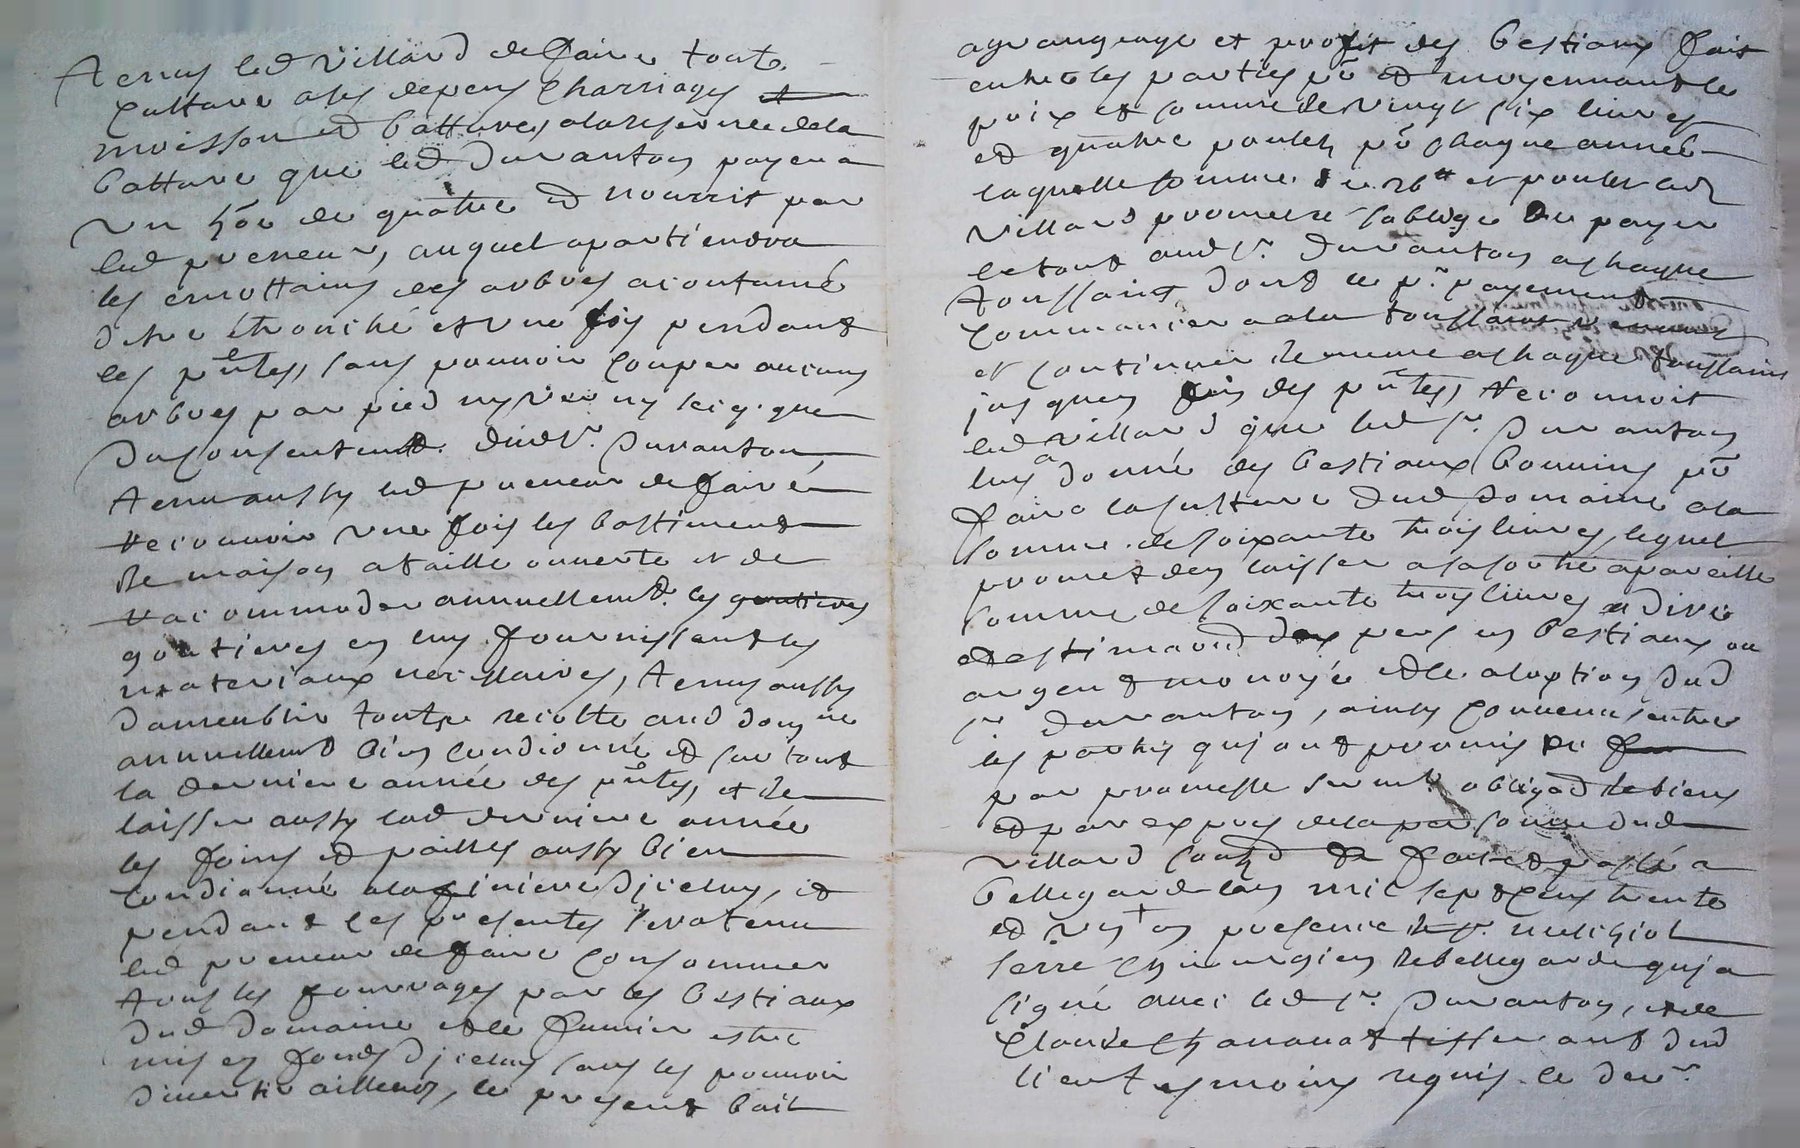 Tenus led Villard de faire toute
Culture a ses depens Charriages
moisson et batture, a la reserve de la
batture que led Duranton payera
un hõe de quatre et nourrit par
led preneur, auquel apartiendra
les emottains des arbres acoutumé
detre etronché et une fois pendant
les pñtes, sans pouvoir couper aucuns
arbres par pied ny vif ny secq que
du consentemt. dud Sr. Duranton,
tenu aussy led preneur de faire
recouvrir une fois les bastiments
de maison a taille ouverte et de
racommoder annuellemt. les goutieres
goutieres en luy fournissant les
materiaux necessaires, tenus aussy
densemblir toute recolte aud domaine
annuellemt bien condionné et surtout
la derniere année des pñtes, et de
laisser aussy lad derniere année
les foins et pailles aussy bien
condionné a la finiere dicelluy, et
pendant les presentes sera tenu
led preneur de faire consommer
tous les fourrages par les bestiaux
dud domaine et le fumier estre
mis en fonds dicelluy sans les pouvoir
divertir ailleurs, le present bail
agrangeage et profit des bestiaux fait
entre les parties pr et moyennant le
prix et somme de vingt six livres
et quatre poulets pr chaque année
laquelle somme de 26tt et poulet led
Villard promet et soblige de payer
le tout aud Sr. Duranton a chaque
toussaint dont le pr. payement
commancera a la toussaint
et continuer de meme a chaque toussains
jusques fin des pñtes, reconnoit
led Villard que led Sr. Duranton
luy a donné des bestiaux bouvins pr
faire la culture dud domaine a la
somme de soixante trois livres, lequel
promet den laisser a sa sortie a pareille
somme de soixante trois livres a dire
et estimaõn dex pers en bestiaux ou
argent monoyé et le a loption dud
Sr Duranton, ainsy convenu entre
les parties qui ont promis
par promesse sermt obligaõn de biens
et par expres de la personne dud
Villard fait et passé a
bellegarde lan mil sept cens trente
et un en presence de Sr.
serre chirurgien de bellegarde qui a
signé avec led Sr. Duranton, et de
Claude Chanavat tisserant dud
lieu tesmoins requis le der.